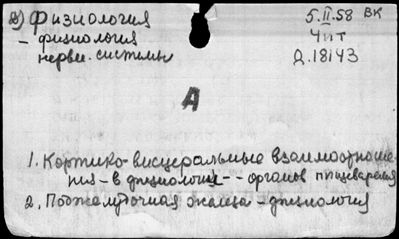 2) Физиология
5.II.58 ВК
- физиология
4 пт
нервн. системы
Д.18143
А
1. Кортико-висцеральные взаимоотноше-
ния - в физиологии - - органов пищеварения
2. Поджелудочная железа - физиология